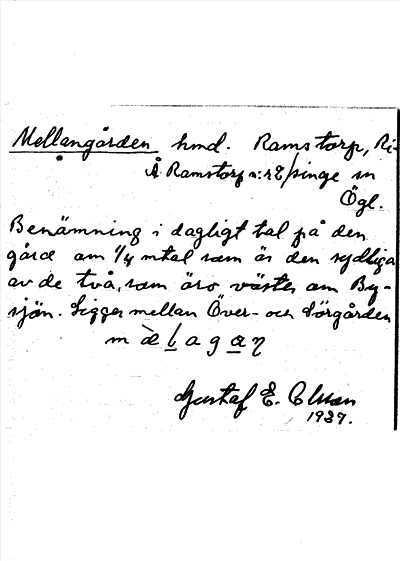 Mellangården hmd. Ramstorp, Ri-
Å Ramstorp n:r 2/singe sn
Ögl.
Benämning i dagligt tal på den
gård om 1/4 mtal som är den sydliga
av de två, som äro väster om By-
sjön. Ligger mellan Över- och Sörgården
m æ̀ l a g a ŋ
Gustaf E. Olsson
1937.